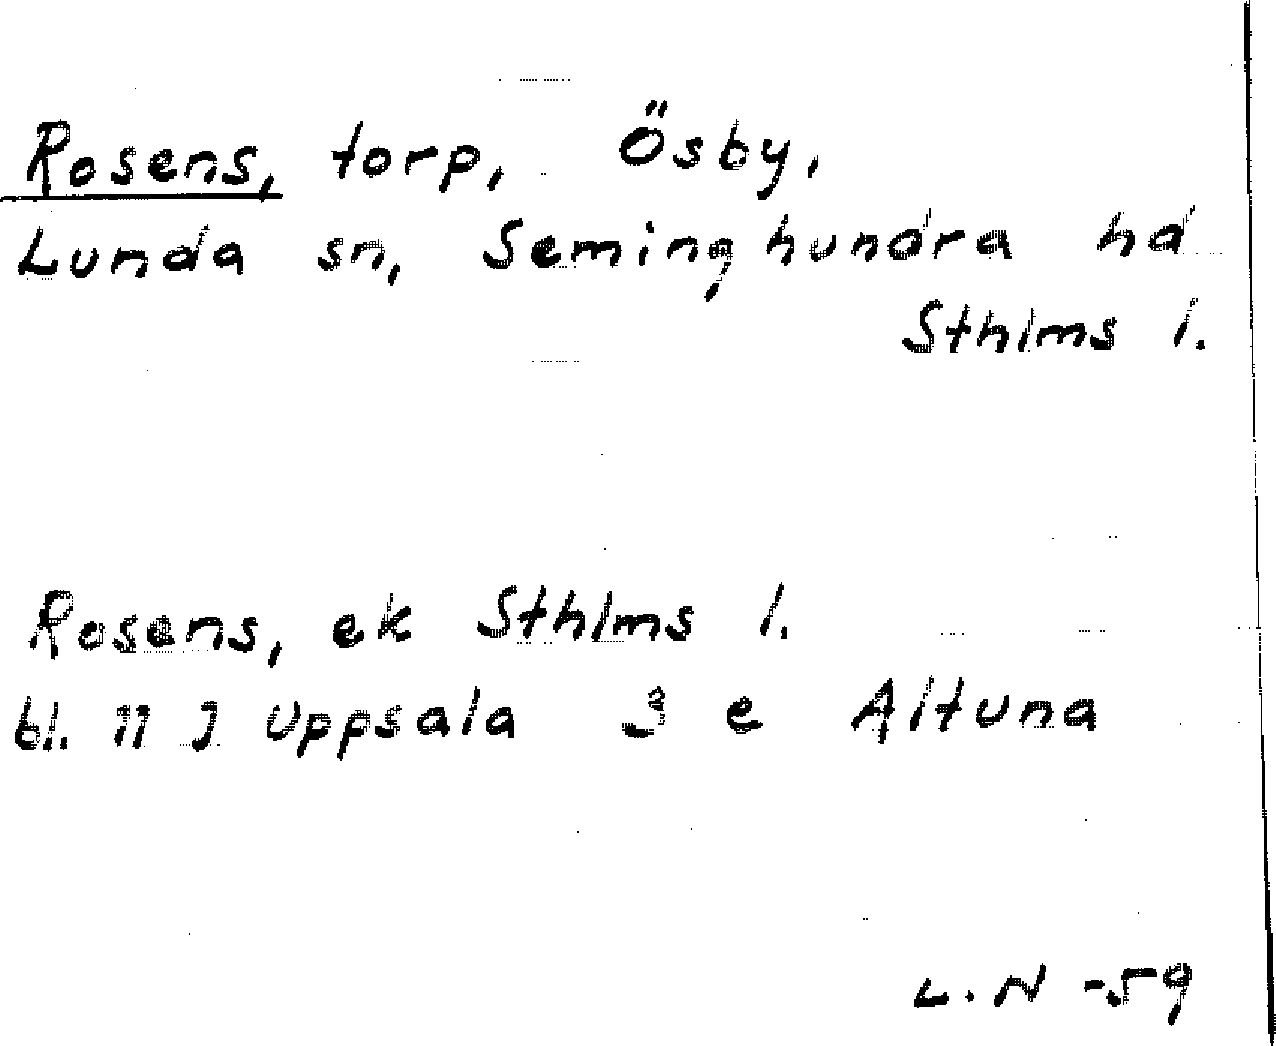 Rosens, torp, Ösby,
Lunda sn, Seminghundra hd
Sthlms l.
Rosens, ek Sthlms l.
bl. 11 I Uppsala 3 e Altuna
L. N -59